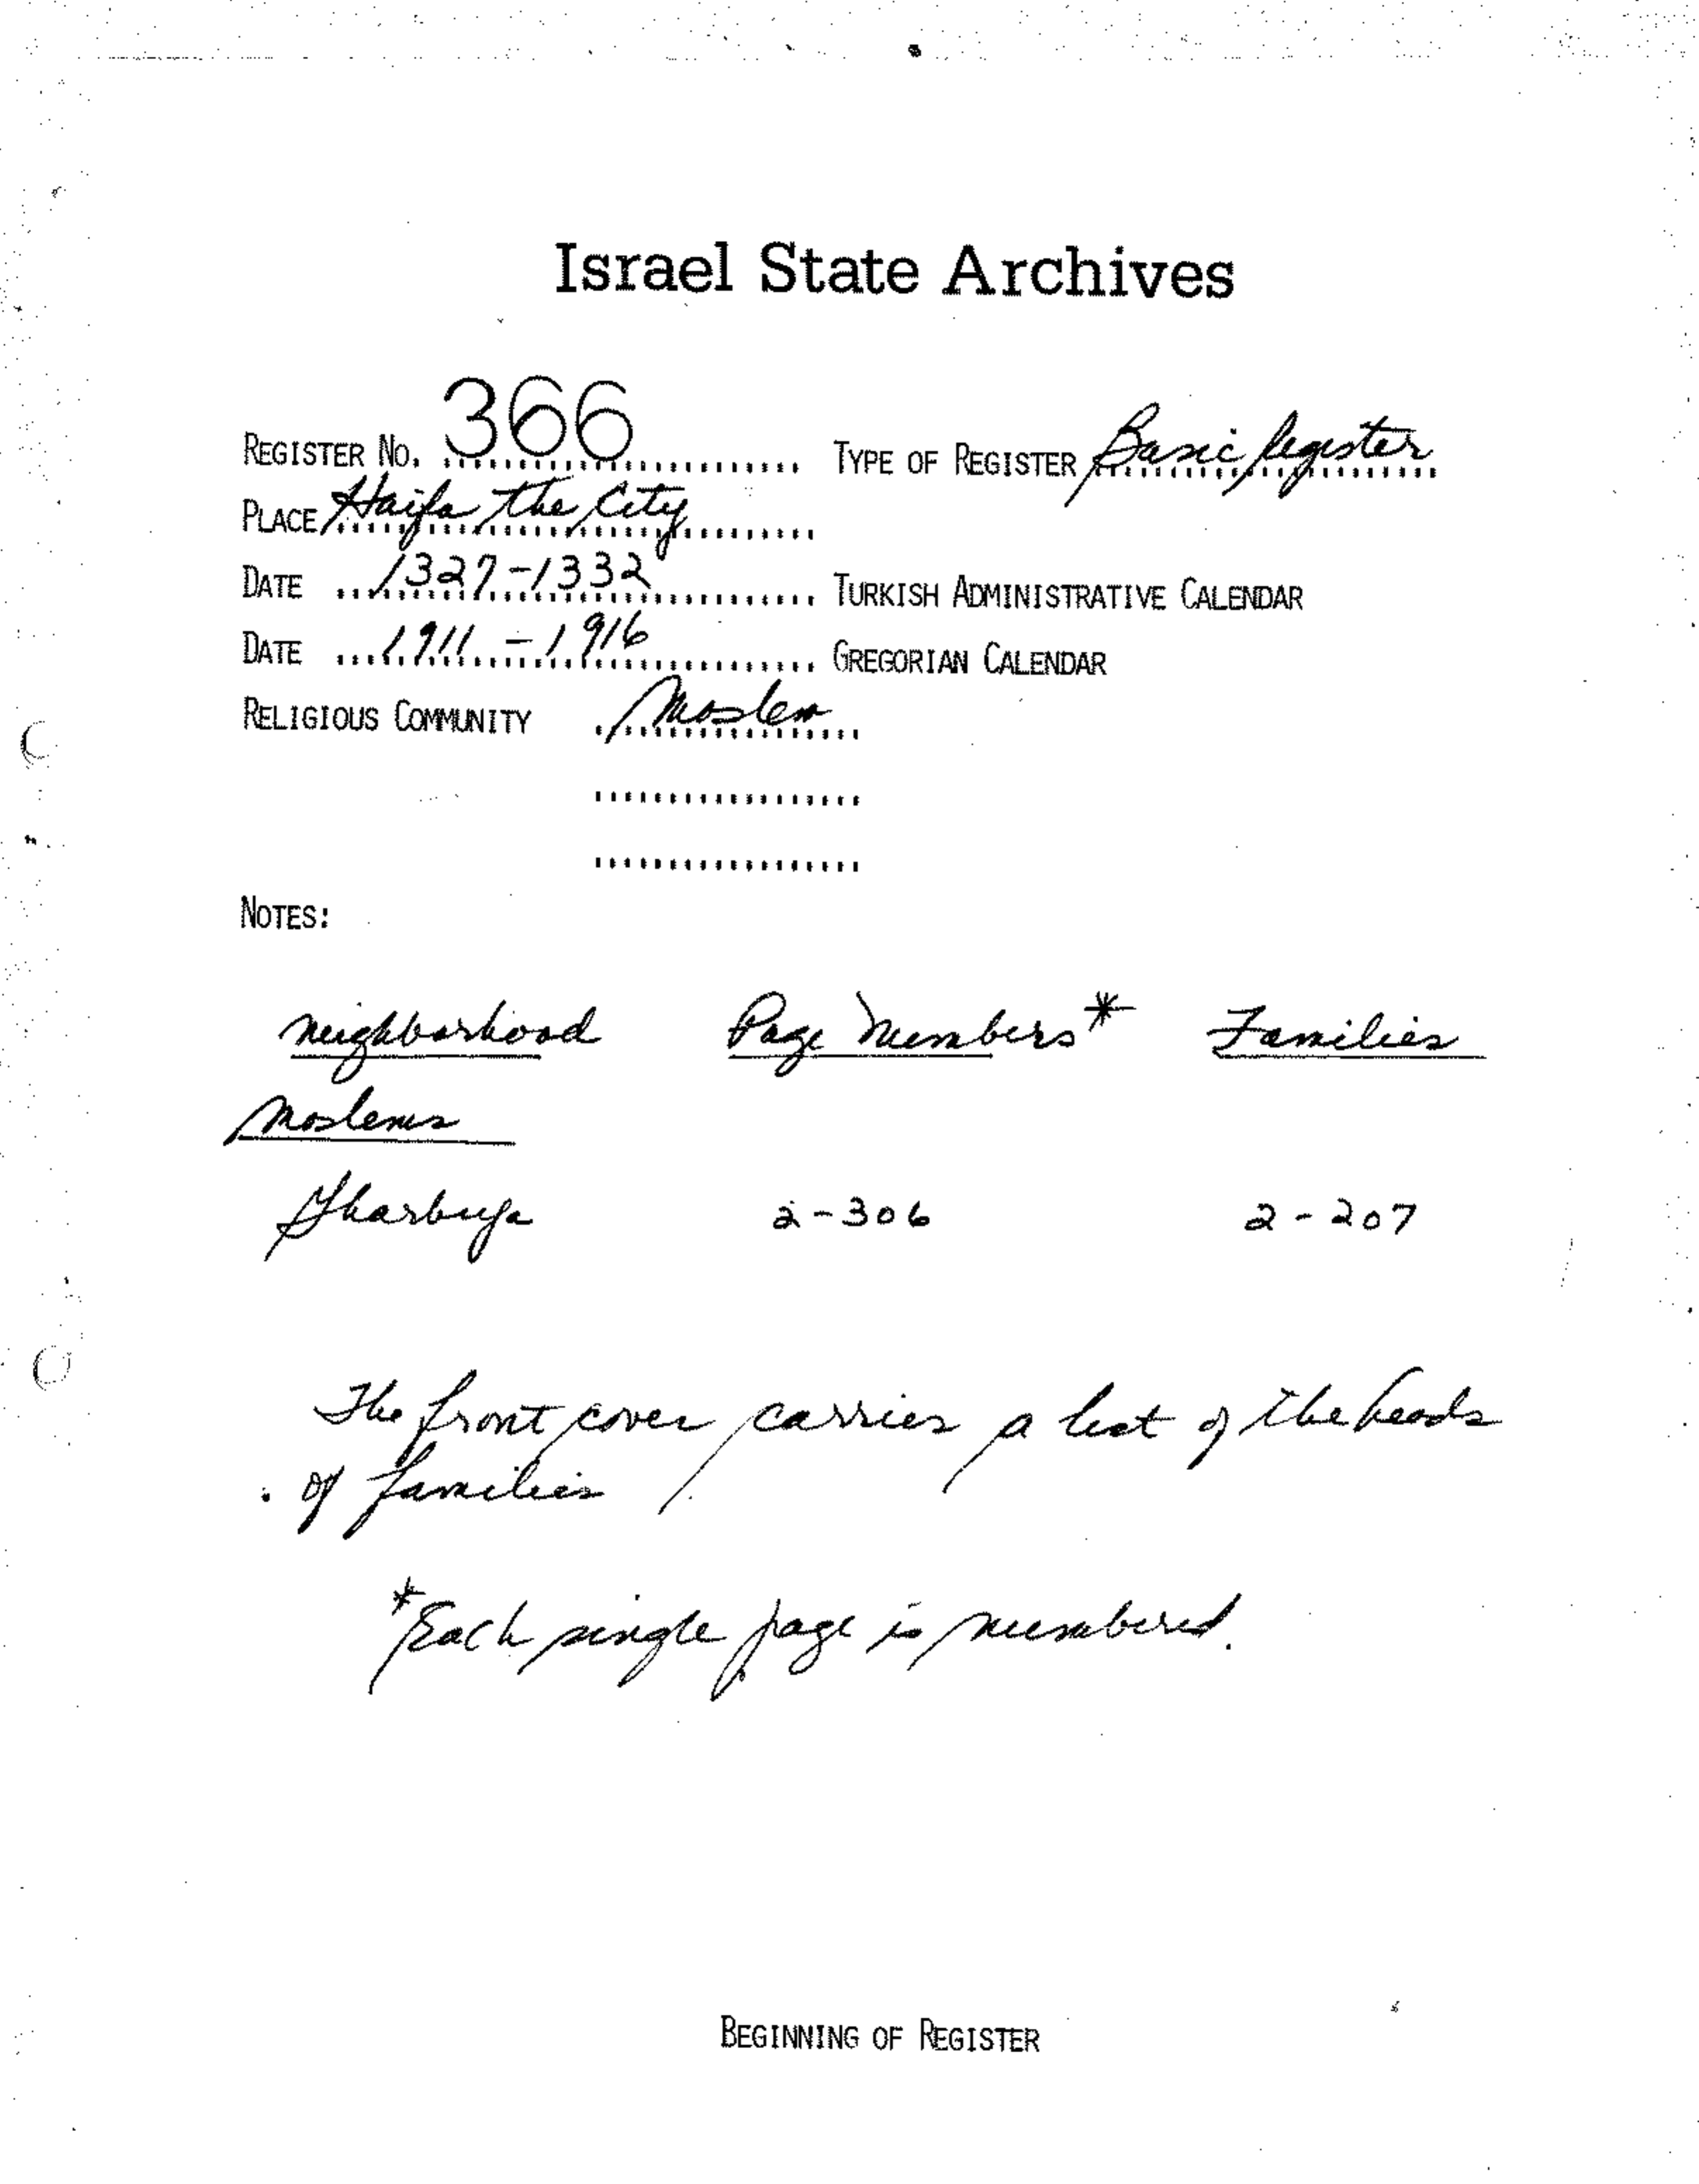 Israel State Archives
REGISTER NO. 366 TYPE OF REGISTER Basic Register
PLACE Haifa the City
DATE 1327-1332 TURKISH ADMINISTRATIVE CALENDAR
DATE 1911-1916 GREGORIAN CALENDAR
RELIGIOUS COMMUNITY Moslem
NOTES:
Neighborhood Page Numbers* Families
Moslems
Gharbuya 2-306 2-207
The front cover carries a list of the heads
of families
*Each single page is numbered.
BEGINNING OF REGISTER